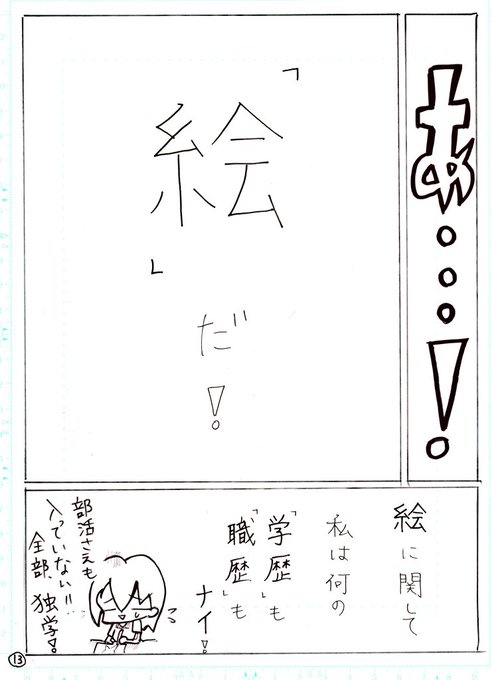 あ・・・!
「絵」
だ!
絵に関して
私は何の
「学歴」も
「職歴」も
ナイ!
部活さえも
入っていない!!
全部、独学!
13